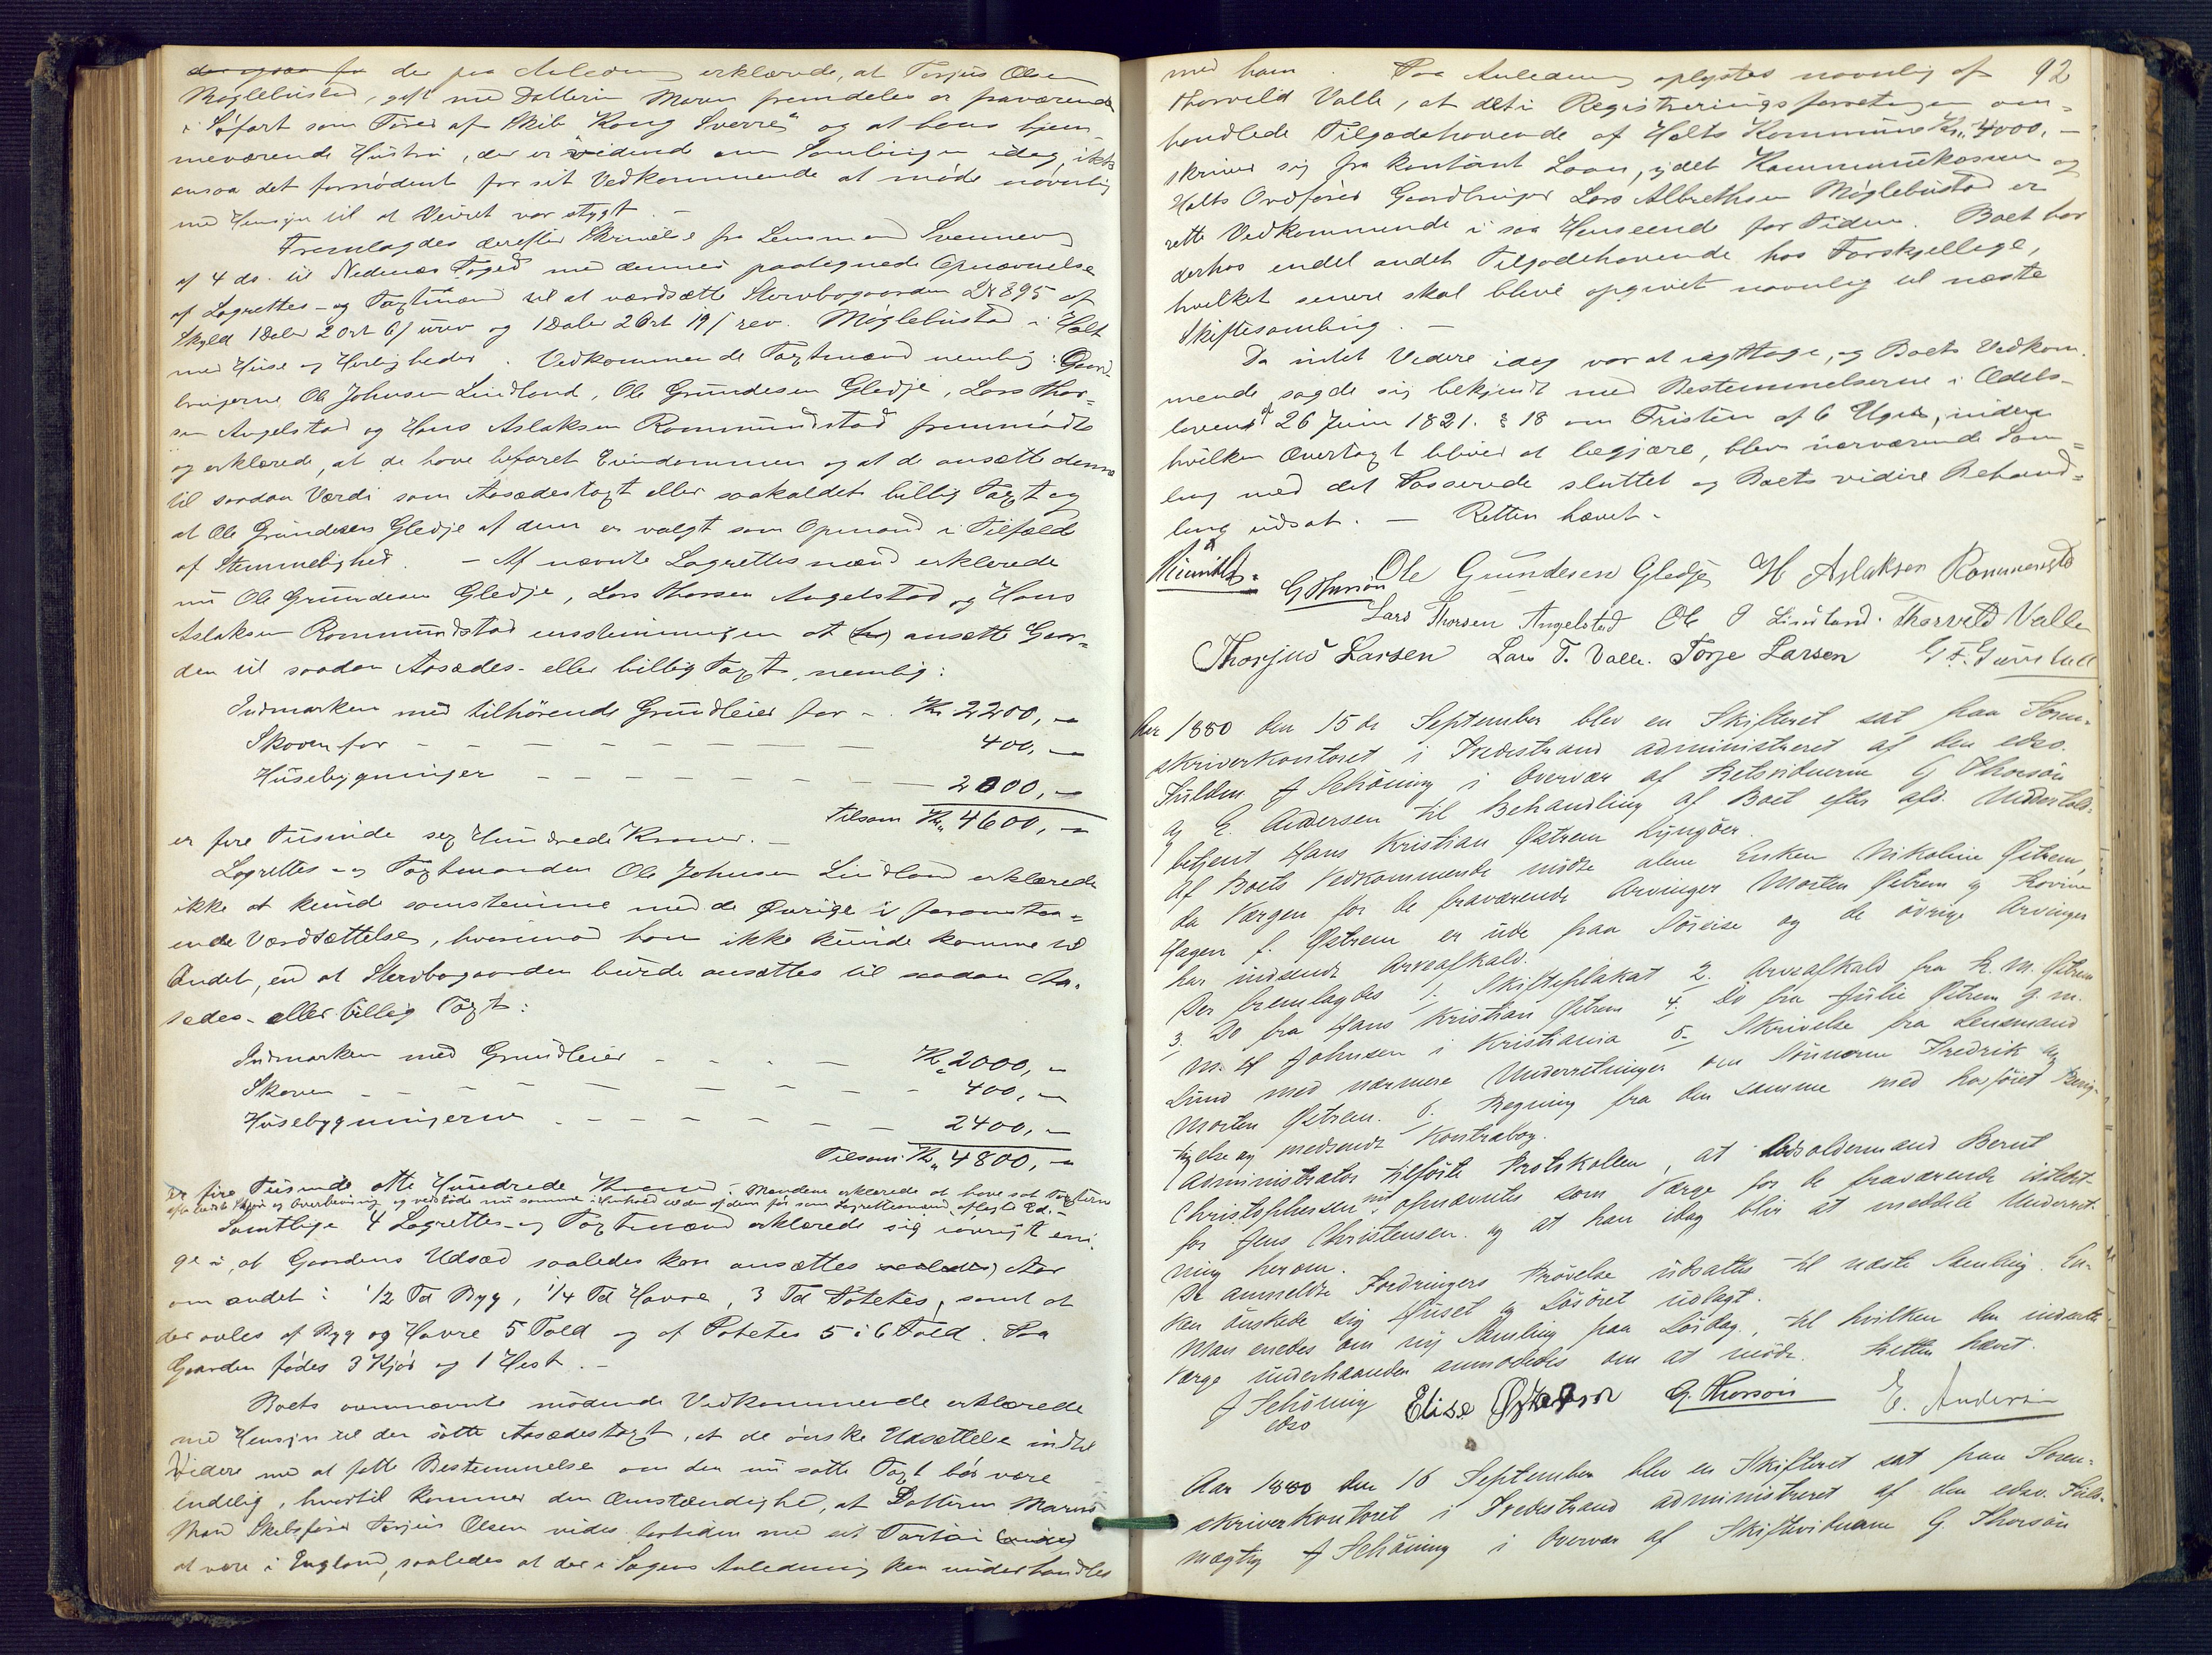 der paa Anledning erklærede, at Torjus Olsen
Møglebustad, gift med Datteren Maren fremdeles er fraværende
i Søfart som Fører af Skib "Kong Sverre" og at hans hjem-
meværende Hustru, der er vidende om Samlingen idag, ikke
ansaa det fornødent for sit Vedkommende at møde navnlig
med Hensyn til at Veiret var stygt. —
Fremlagdes derefter Skrivelse fra Lensmand Svennevig
af 4 ds. til Nedenæs Foged med dennes paategnede Opnævnelse
af Lagrettes- og Taxtmænd til at værdsætte Stervbogaarden L№ 895 af
Skyld 1 Daler 2 Ort 6 / urev og 1 Daler 2 Ort 19 / rev. Møglebustad i Holt
med Huse og Herligheder. Vedkommende Taxtmænd nemlig: Gaard-
brugerne Ole Johnsen Lindland, Ole Gundesen Gledje, Lars Thor-
sen Angelstad og Hans Aslaksen Rommundstad fremmødte
og erklærede, at de have befaret Eiendommen og at de ansætte denne
til saadan Værdi som Aasædestaxt eller saakaldet billig Taxt og
at Ole Gundesen Gledje af dem er valgt som Opmand i Tilfælde
af Stemmelighed. — Af nævnte Lagrettesmænd erklærede
nu Ole Gundesen Gledje, Lars Thorsen Angelstad og Hans
Aslaksen Rommundstad enstemmigen at ansætte Gaar-
den til saadan Aasædes- eller billig Taxt, nemlig:
Indmarken med tilhørende Grundleier for - . Kr. 2200, -
Skoven for - - - - - - - 400, -
Husebygninger - - - - - - - 2000, -
Tilsam Kr. 4600, -
er fire Tusinde sex Hundrede Kroner. —
Lagrettes- og Taxtmanden Ole Johnsen Lindland erklærede
ikke at kunde samstemme med de Øvrige i foranstaa-
ende Værdsættelse, hvorimod han ikke kunde komme til
Andet, end at Stervbogaarden burde ansættes til saadan Aa-
sædes- eller billig Taxt:
Indmarken med Grundleier - - - - Kr. 2000, -
Skoven - - - - - - - 400, -
Husebygningerne - - - - - - 2400, -
Tilsam Kr. 4800, -
er fire Tusinde otte Hundrede Kroner. Mændene erklærede at have sat Taxterne
efter bedste Skjøn og Overbevisning og vedstode nu samme i Henhold til den af dem før som Lagrettesmænd aflagte Ed. -
Samtlige 4 Lagrettes- og Taxtmænd erklærede sig iøvrigt eni-
ge i, at Gaardens Udsæd saaledes kan ansættes Aar
om andet: 1/2 Td Byg, 1/4 Td Havre, 3 Td Potetes, samt at
der avles af Byg og Havre 5 Fold og af Potetes 5 à 6 Fold. Paa
Gaarden fødes 3 Kjør og 1 Hest. —
Boets ovennævnte mødende Vedkommende erklærede
med Hensyn til den satte Aasædestaxt, at de ønske Udsættelse indtil
Videre med at fatte Bestemmelse om den nu satte Taxt bør være
endelig, hvortil kommer den Omstændighed, at Datteren Marens
Mand Skibsfører Torjus Olsen vides fortiden med sit Fartøi
at være i England, saaledes at der i Sagens Anledning kan underhandles
92
med ham. Paa Anledning oplystes navnlig af
Thorvild Valle, at det i Registreringsforretningen om-
handlede Tilgodehavende af Holts Kommune Kr. 4000, —
skriver sig fra kontant Laan, idet Kommunekassen og
Holts Ordfører Gaardbruger Lars Albrethsen Møglebustad er
rette Vedkommende i saa Henseende for Tiden. Boet har
derhos endel andet Tilgodehavende hos Forskjellige,
hvilket senere skal blive opgivet navnlig til næste
Skiftesamling. —
Da intet Videre idag var at iagttage, og Boets Vedkom-
mende sagde sig bekjendt med Bestemmelserne i Odels-
lovens af 26 Juni 1821. § 18 om Fristen af 6 Uger, inden
hvilken Overtaxt bliver at begjære, blev nærværende Sam-
ling med det Passerede sluttet og Boets videre Behand-
ling udsat. — Retten hævet. -
G Thorsøn Ole Gundesen Gledje H Aslaksen Rommundstd
Lars Thorsen Angelstad Ole J Lindland. Thorveld Valle
Thorjus Larsen Lars T. Valle. Torje Larsen
Aar 1880 den 15de September blev en Skifteret sat paa Soren-
skriverkontoret i Tvedestrand administreret af den edsv.
Fuldm. J Schöning i Overvær af Retsvidnerne G Thorsøn
og E. Andersen til Behandling af Boet efter afd. Undertold-
betjent Hans Kristian Østrem Lyngøer.
Af Boets Vedkommende mødte alene Enken Nikoline Østrem,
da Værgen for de fraværende Arvinger Morten Østrem og Lovine
Hagen f. Østrem er ude paa Søreise og de øvrige Arvinger
har indsendt Arveafkald.
Der fremlagdes 1. Skifteplakat 2. Arveafkald fra K. M. Østrem
3. Do fra Hans Kristian Østrem 4. Do fra Julie Østrem g. m.
M. H Johnsen i Kristiania 5. Skrivelse fra Lensmand
Lund med nærmere Underretninger om Sønnerne Fredrik og
Morten Østrem. 6. Regning fra den samme med hosføiet Bevig-
tigelse og medsendt Kontrabog.
Administrator tilførte Protokollen, at Lodsoldermand Bernt
Christophersen nu opnævntes som Værge for de fraværende istedet-
for Jens Christensen. og at han idag blir at meddele Underret-
ning herom.
De anmeldte Fordringers Prøvelse udsattes til næste Samling. En-
ken ønskede sig Huset og Løsøret udlagt.
Man enedes om ny Samling paa Lördag, til hvilken den indsatte
Værge underhaanden anmodedes om at møde. Retten hævet.
J Schöning Elise Østrem G. Thorsøn E. Andersen
edsv
Aar 1880 den 16 September blev en Skifteret sat paa Soren-
skriverkontoret i Tvedestrand administreret af den edsv. Fuld-
mægtig J Schöning i Overvær af Skiftevidnerne G. Thorsøn